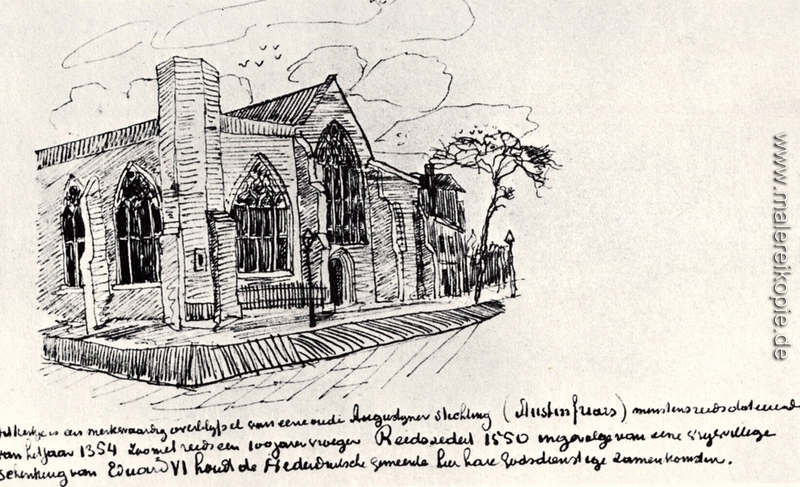 Dit kerkje is een merkwaardig overblijfsel van eene oude Augustyner stichting (Austin friars) minstens reeds dateerend
van het jaar 1354 zoo niet reeds een 100 jaar vroeger Reeds sedert 1550 ingevolge van eene vrijwillige
schenking van Eduard VI houdt de Nederduitsche gemeente hier hare Godsdienstige Zamenkomsten.
www.malereikopie.de